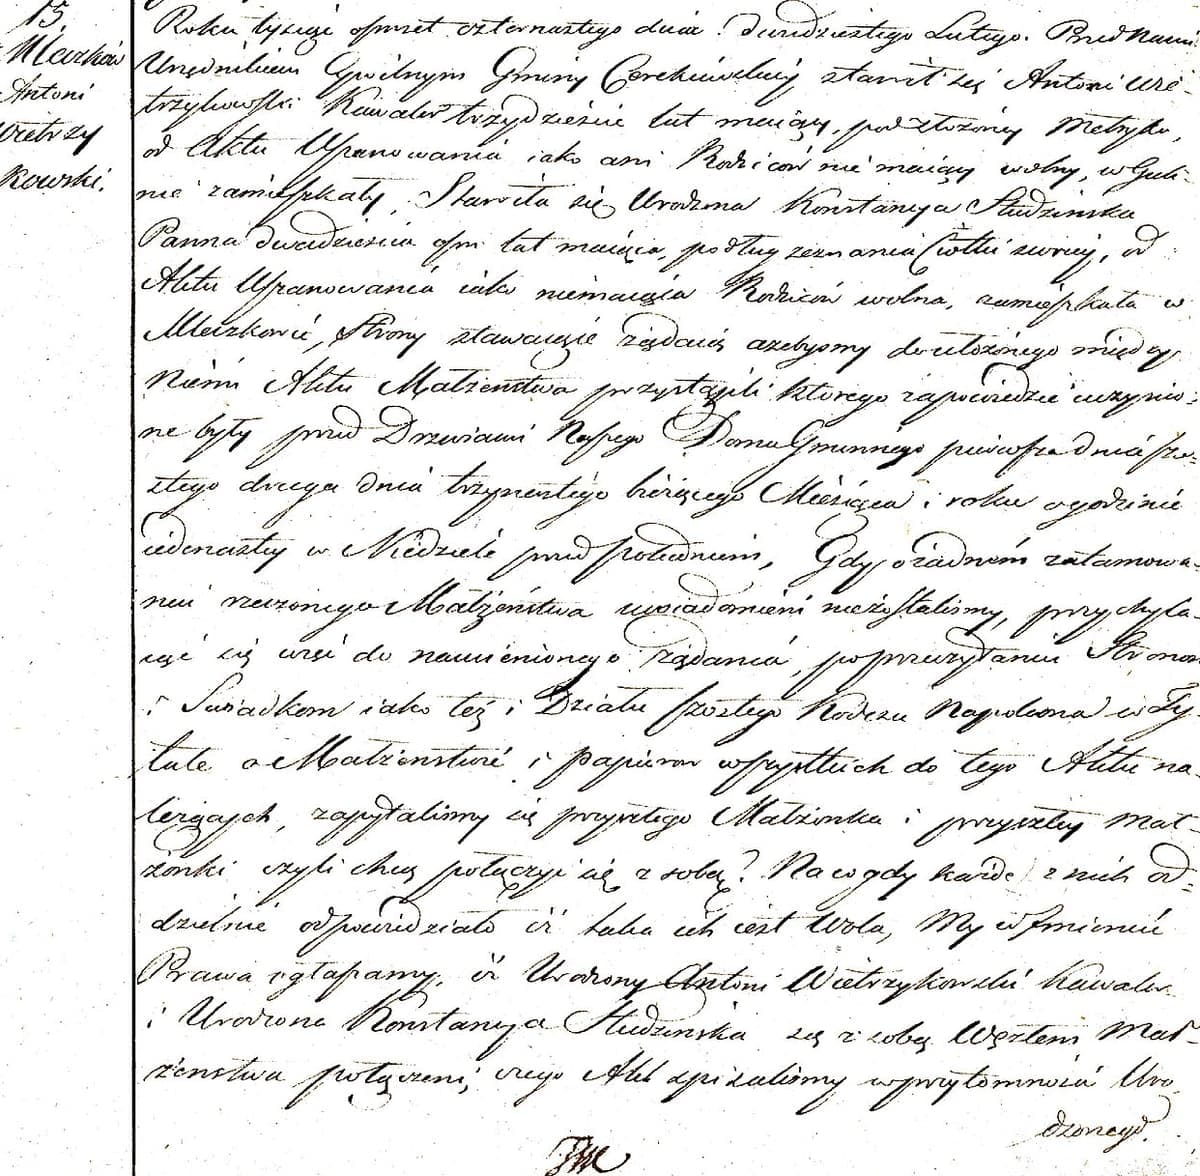 15
Mleczków
Antoni
Wietrzy
kowski.
Roku tysiąc osmset czternastego dnia dwudziestego Lutego. Przed Nami
Urzędnikiem Cywilnym Gminy Cerekiewskiej stawił się Antoni Wie-
trzykowski Kawaler trzydzieście lat maiący, pod złożoną Metryką,
od Aktu Uszanowania iako ani Rodziców nie maiący wolny, w Gul-
nie zamieszkały, Stawiła się Urodzona Konstancya Studzinska
Panna dwadzieścia osm lat maiąca, podług zeznania Ciotki swoiey, od
Aktu Uszanowania iako niemaiąca Rodziców wolna, zamieszkała w
Mleczkowie, Strony stawaiące żądaią ażebyśmy do ułożonego między
Niemi Aktu Małżeństwa przystąpili którego zapowiedzie uczynio-
ne były przed Drzwiami Naszego Domu Gminnego pierwsza dnia szo-
stego druga dnia trzynastego bieżącego Miesiąca i roku o godzinie
iedenastey w Niedziele przed południem, Gdy o żadnem zatamowa-
niu rzeczonego Małżeństwa uwiadomieni niezostaliśmy, przychyla-
iąc się więc do namienionego żądania, po przeczytaniu Stronom
i Świadkom iako też i Działu szóstego Kodexu Napoleona w Ty-
tule o Małżeństwie i papierow wszystkich do tego Aktu na-
leżących, zapytaliśmy się przyszłego Małżonka i przyszłey Mał-
żonki czyli chcą połączyć się z sobą? Na co gdy każde z nich od-
dzielnie odpowiedziało iż taka ich iest Wola, My w Imieniu
Prawa ogłaszamy, iż Urodzony Antoni Wietrzykowski Kawaler
i Urodzona Konstancya Studzinska są z sobą Węzłem Mał-
żenstwa połączeni, czego Akt spisaliśmy w przytomności Uro-
dzonego.